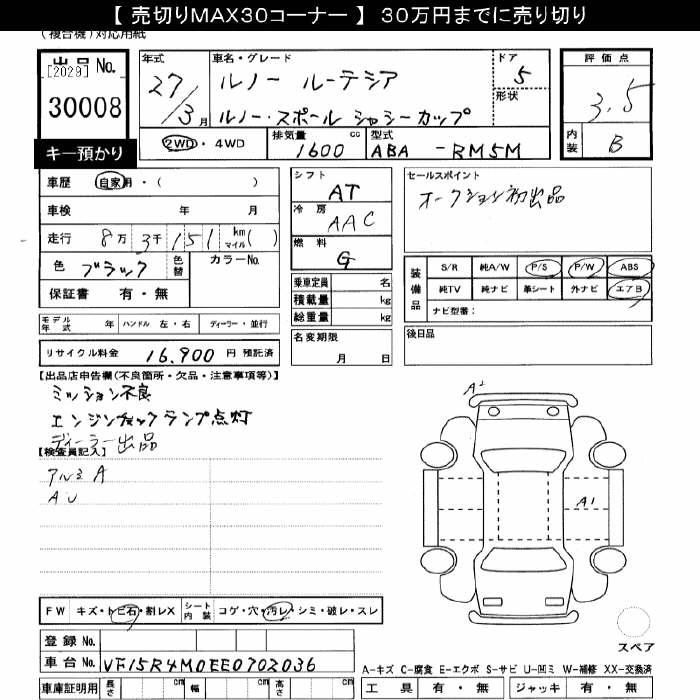 【 売切りMAX30コーナー 】 30万円までに売り切り
(複合機)対応用紙
出品 No.
[2029]
30008
キー預かり
年式 27/3月
車名・グレード ルノー ルーテシア
ルノー・スポール シャシーカップ
ドア 5
形状
評価点 3.5
内装 B
2WD・4WD
排気量 1600 cc
型式 ABA-RM5M
車歴 自家用・( )
車検 年 月
走行 8万3千151 km マイル( )
色 ブラック 色替 カラーNo.
保証書 有・無
シフト AT
冷房 AAC
燃料 G
乗車定員 名
積載量 kg
総重量 kg
名変期限 月 日
セールスポイント
オークション初出品
装備品
S/R 純A/W P/S P/W ABS
純TV 純ナビ 革シート 外ナビ エアB
ナビ型番:
後日品
モデル年式 年 ハンドル 左・右 ディーラー・並行
リサイクル料金 16,900 円 預託済
【出品店申告欄(不良箇所・欠品・注意事項等)】
ミッション不良
エンジンチェックランプ点灯
ディーラー出品
【検査員記入】
アルミ A
AU
A2
A1
スペア
FW キズ・トビ石・割レX シート内装 コゲ・穴・汚レ・シミ・破レ・スレ
登録 No.
車台 No. VF15R4M0EE0702036
車庫証明用 長さ cm 幅 cm 高さ cm
A-キズ C-腐食 E-エクボ S-サビ U-凹ミ W-補修 XX-交換済
工具 有・無 ジャッキ 有・無